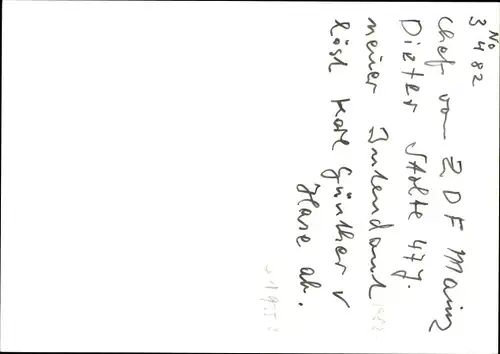 No
3482
Chef vom ZDF Mainz
Dieter Stolte 47J.
neuer Intendant
löst Karl Günther v
Hase ab.